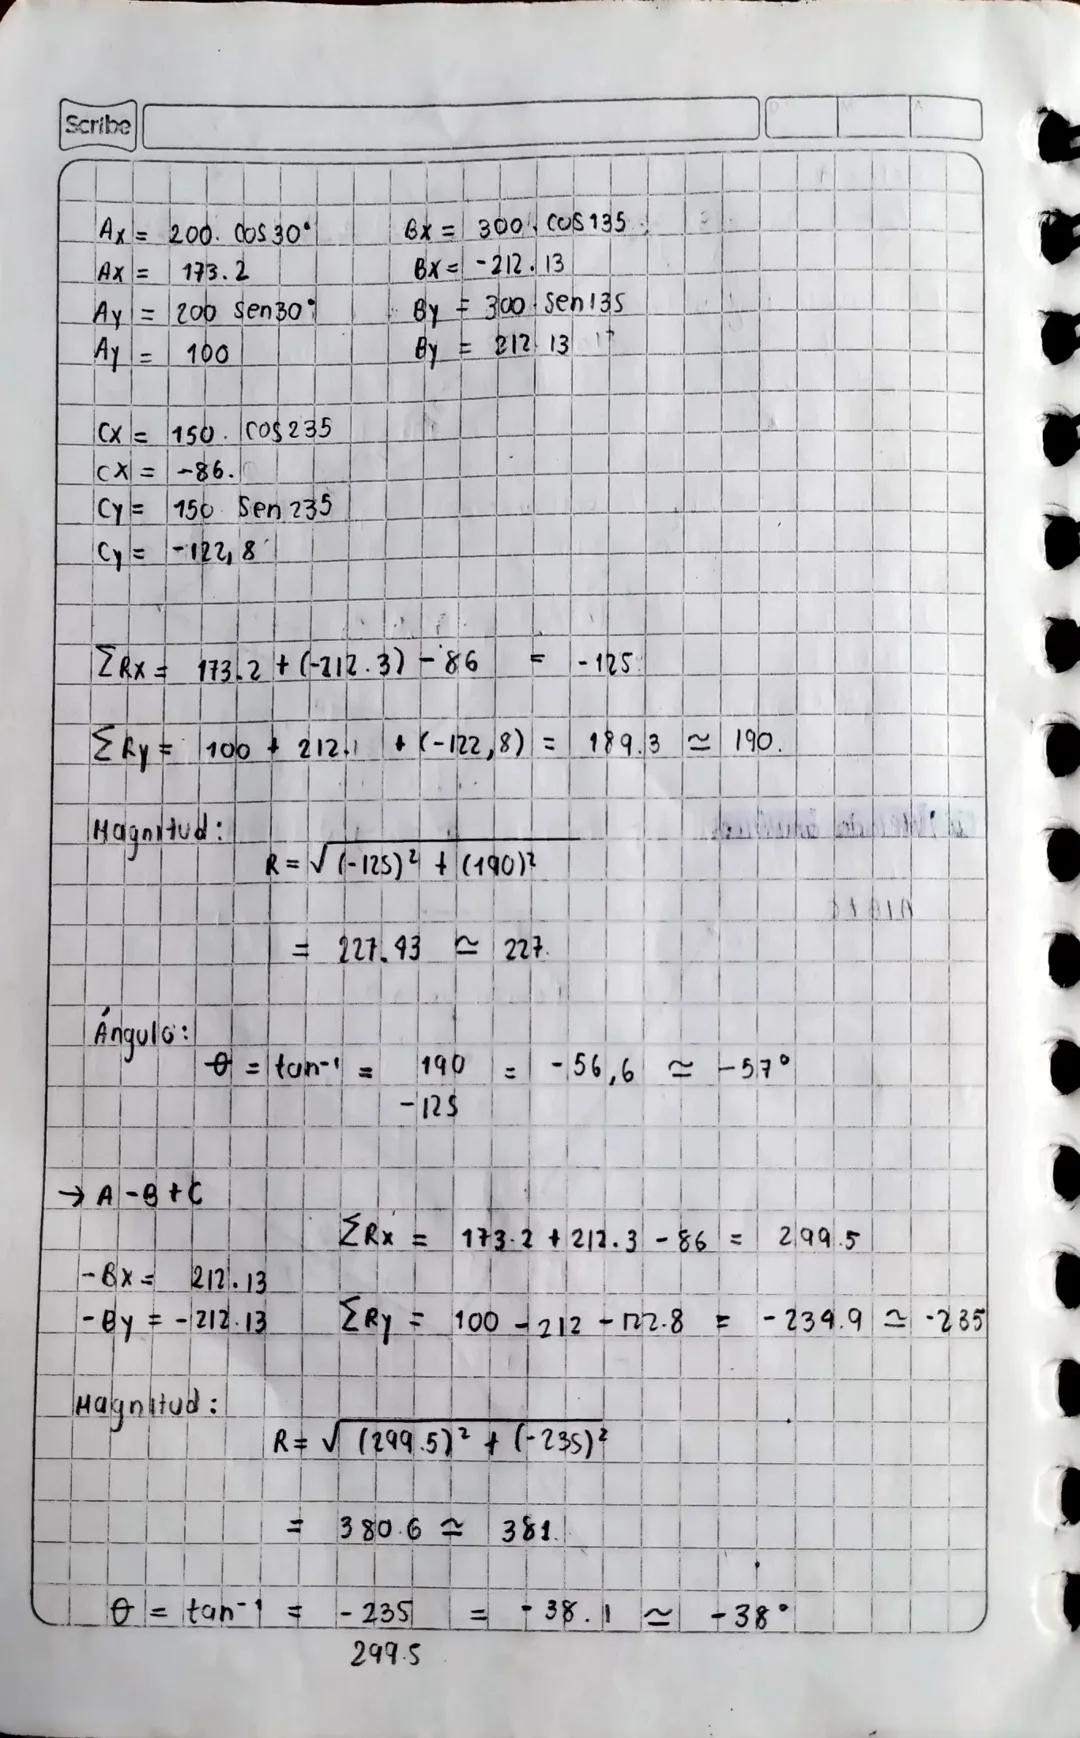 Scribe
Ax = 200. Cos 30°
Bx = 300. Cos 135
Ax = 173.2
Bx = -212.13
Ay = 200 Sen30°
By = 300 Sen 135
Ay = 100
By = 212.13
Cx = 150. Cos 235
Cx = -86.
Cy = 150 Sen 235
Cy = -122,8
ΣRx = 173.2 + (-212.3) - 86 = -125
ΣRy = 100 + 212.1 + (-122,8) = 189.3 ≃ 190.
Magnitud:
R = √(-125)² + (190)²
= 227.43 ≃ 227.
Ángulo:
θ = tan-¹ = 190 = -56,6 ≃ -57°
-125
→ A - B + C
ΣRx = 173.2 + 212.3 - 86 = 299.5
-Bx = 212.13
-By = -212.13
ΣRy = 100 - 212 - 122.8 = -234.9 ≃ -235
Magnitud:
R = √(299.5)² + (-235)²
= 380.6 ≃ 381.
θ = tan-¹ = -235 = -38.1 ≃ -38°
299.5